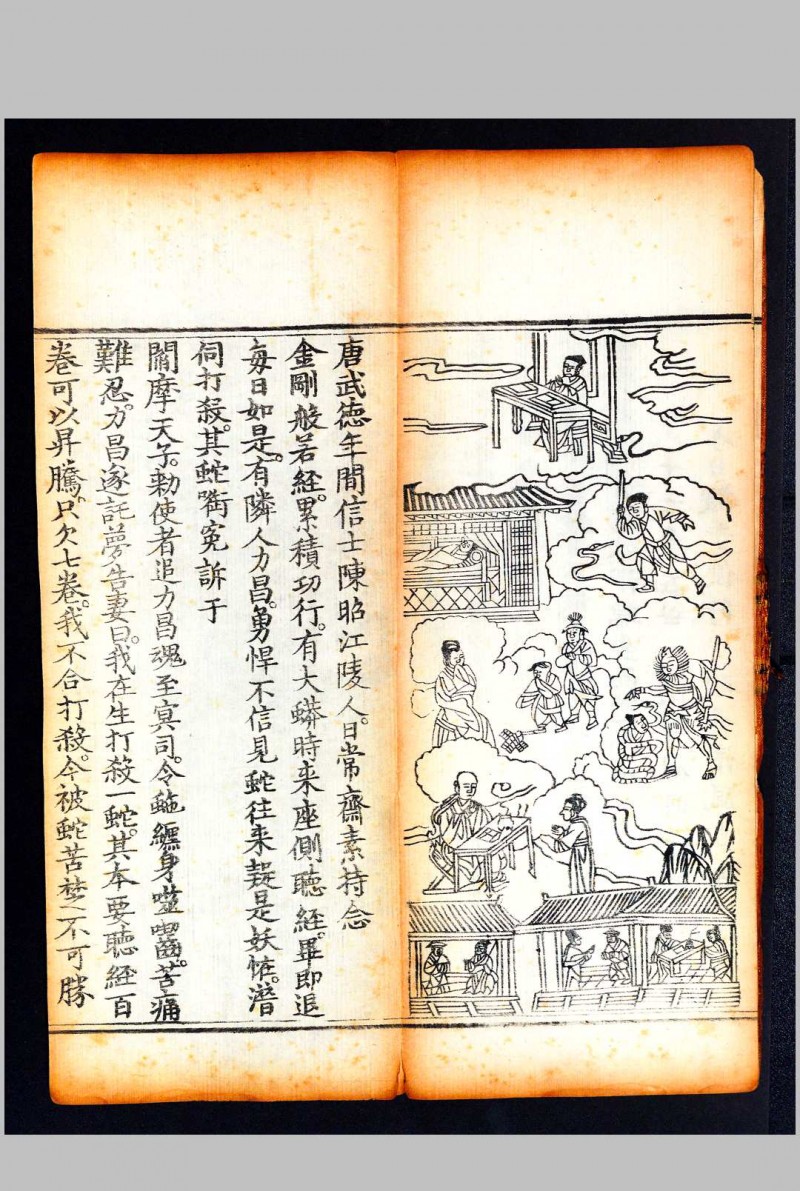 唐武德年間信士陳昭江陵人。日常齋素持念
金剛般若經。累積功行。有大蟒時来座側聽經。畢即退
每日如是。有隣人力昌。勇悍不信見蛇往来疑是妖恠。潛
伺打殺。其蛇啣寃訴于
閻摩天子。勅使者追力昌魂至冥司。令虵纏身噬嚙。苦痛
難忍。力昌遂託夢告妻曰。我在生打殺一蛇。其本要聽經百
卷可以昇騰。只欠七卷。我不合打殺。今被蛇苦楚不可勝